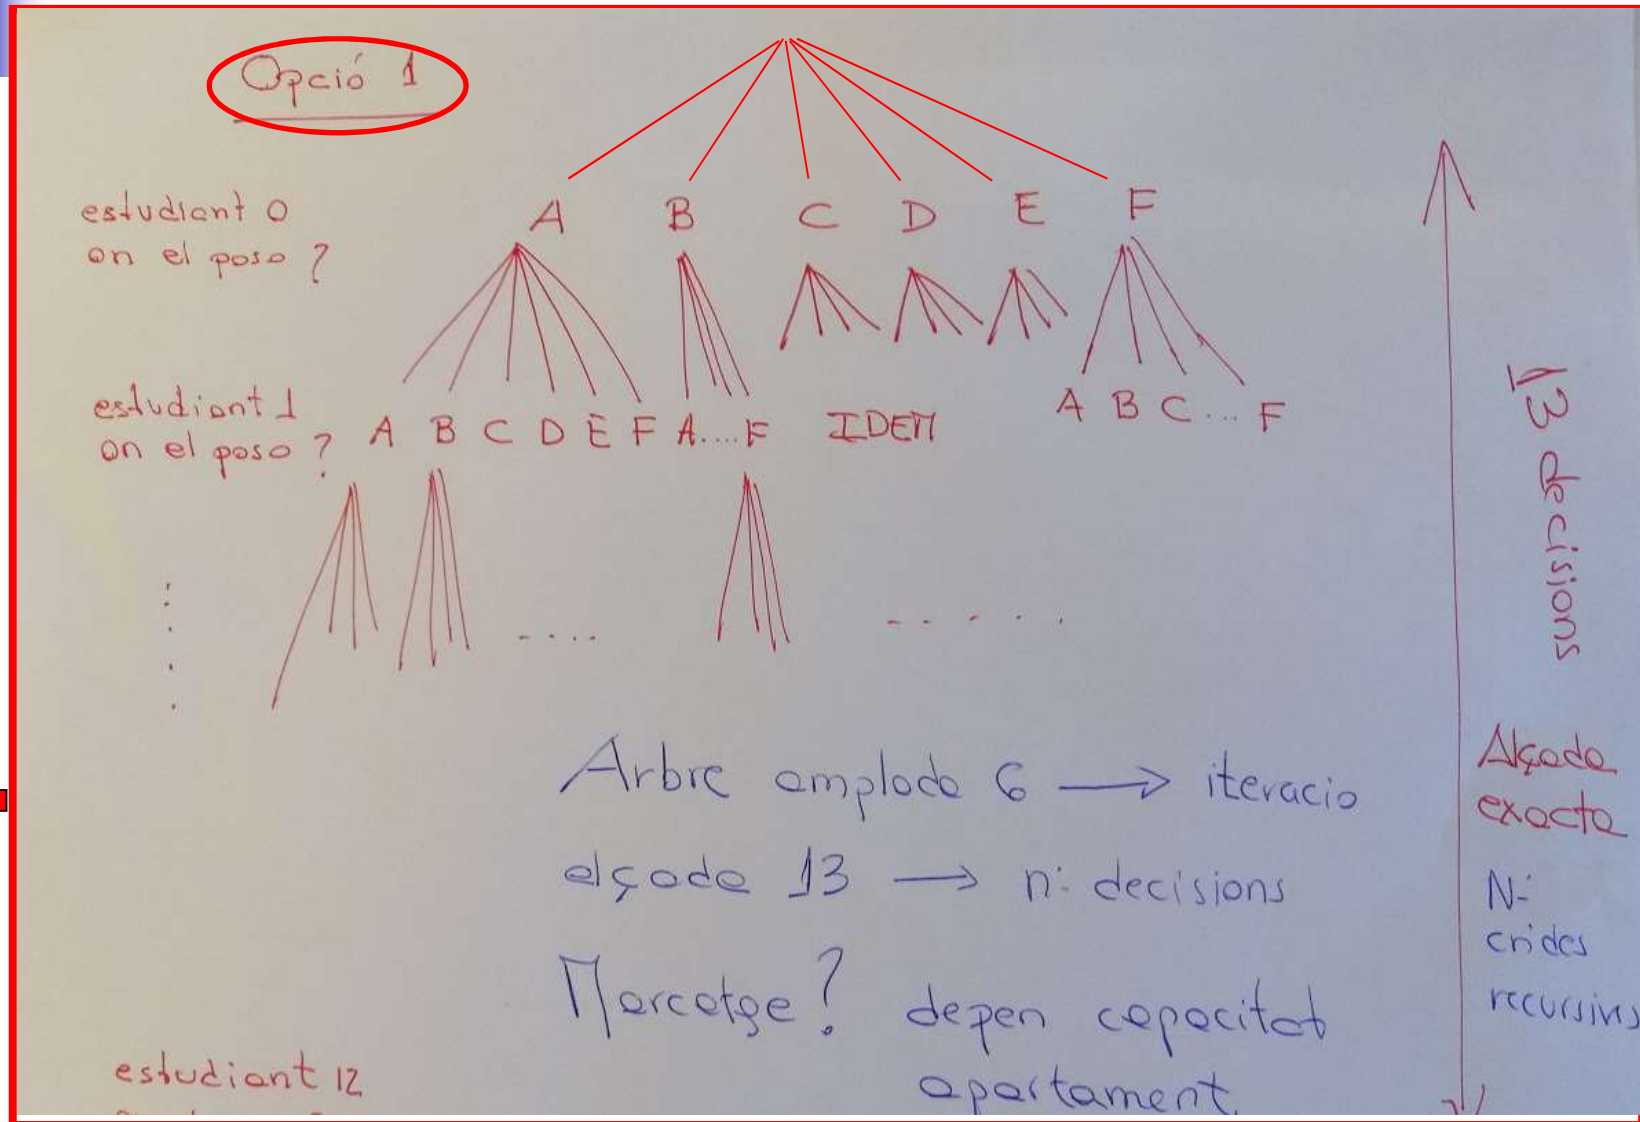 Opció 1
A B C D E F
estudiant 0
on el poso ?
estudiant 1
on el poso ?
A B C D E F A....F IDEM A B C... F
13 decisions
Arbre amplada 6 → iteracio
alçada 13 → n: decisions
Marcatge? depen capacitat
apartament.
Alçada
exacta
N:
crides
recursives
estudiant 12